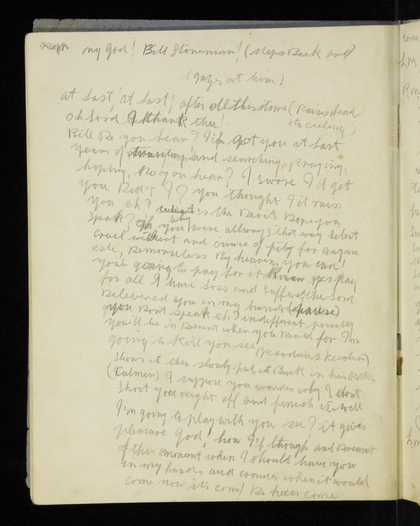 my God! Bill Stoneman! (steps Back and
gazes at him)
at Last, at Last, after all this time (Raises head
oh Lord I thank thee! to ceiling)
Bill Do you hear? I've got you at Last
years of and searching, praying,
hoping, Do you hear? I swore I'd get
you Didn't I? you thought I'd miss
you eh? is the Devil Dont you
speak? why you were allways that way silent
cruel without and ounce of pity for anyone
else, Remorseless By heaven you
you're going to pay for it yes pay
for all I have Lost and suffered the Lord
Delivered you in my hands (pause)
you Dont speak eh? indifferent
you'll be in Demand when you for I'm
going to kill you see (
shows it then slowly puts it Back in his
(Calmer) I suppose you wonder why I dont
shoot you right off and finish it well
I'm going to play with you see? it gives
pleasure God, how I'f though and Dreamt
of this moment when I should have you
in my hands and when it would
come now its come he has come